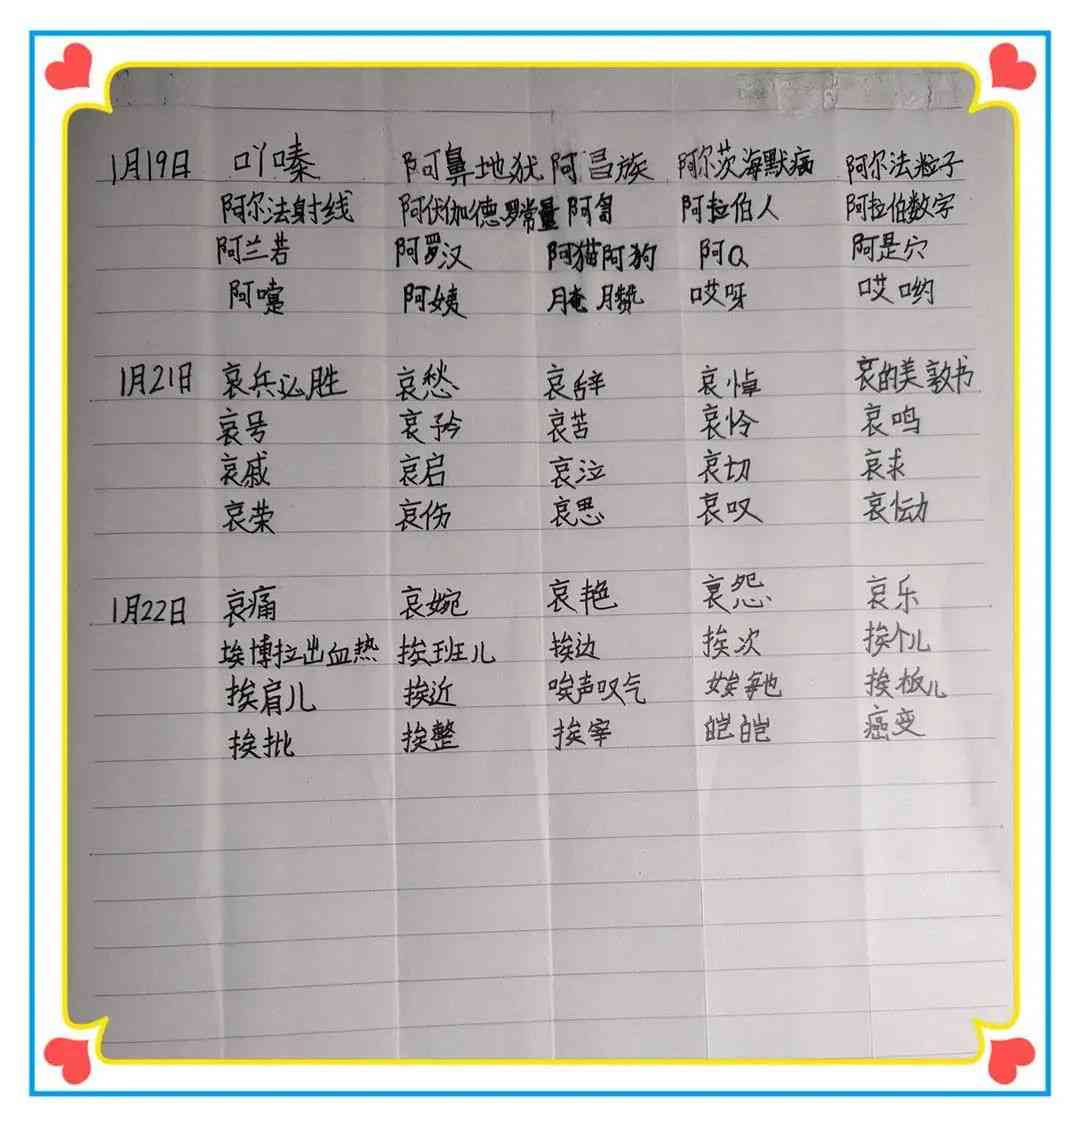 1月19日 吖嗪 阿鼻地狱 阿昌族 阿尔茨海默病 阿尔法粒子
阿尔法射线 阿伏伽德罗常量 阿訇 阿拉伯人 阿拉伯数字
阿兰若 阿罗汉 阿猫阿狗 阿Q 阿是穴
阿嚏 阿姨 腌臜 哎呀 哎哟
1月21日 哀兵必胜 哀愁 哀辞 哀悼 哀的美敦书
哀号 哀矜 哀苦 哀怜 哀鸣
哀戚 哀启 哀泣 哀切 哀求
哀荣 哀伤 哀思 哀叹 哀恸
1月22日 哀痛 哀婉 哀艳 哀怨 哀乐
埃博拉出血热 挨班儿 挨边 挨次 挨个儿
挨肩儿 挨近 唉声叹气 娭毑 挨板儿
挨批 挨整 挨宰 皑皑 癌变